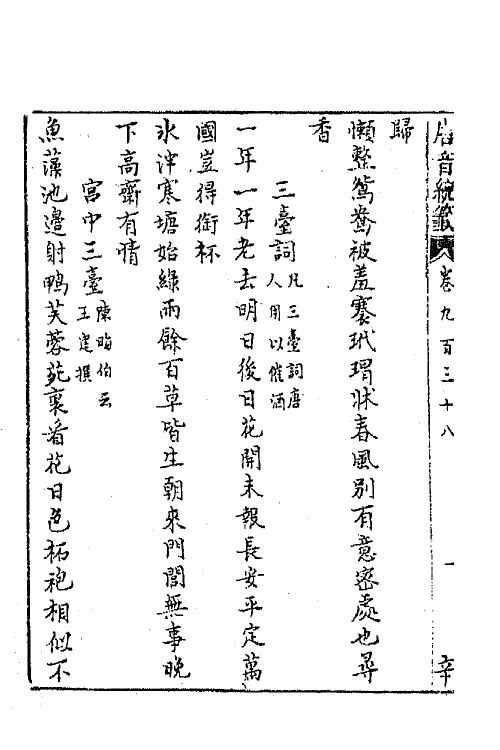 唐音統籖 卷九百三十八 一 辛
歸
懶整鴛鴦被羞褰玳瑁牀春風别有意密處也尋
香
三臺詞 凡三臺詞唐人用以催酒
一年一年老去明日後日花開未報長安平定萬
國豈得銜杯
氷泮寒塘始綠雨餘百草皆生朝來門閤無事晚
下高齋有情
宮中三臺 陳晦伯云王建撰
魚藻池邊射鴨芙蓉苑裏看花日色柘袍相似不